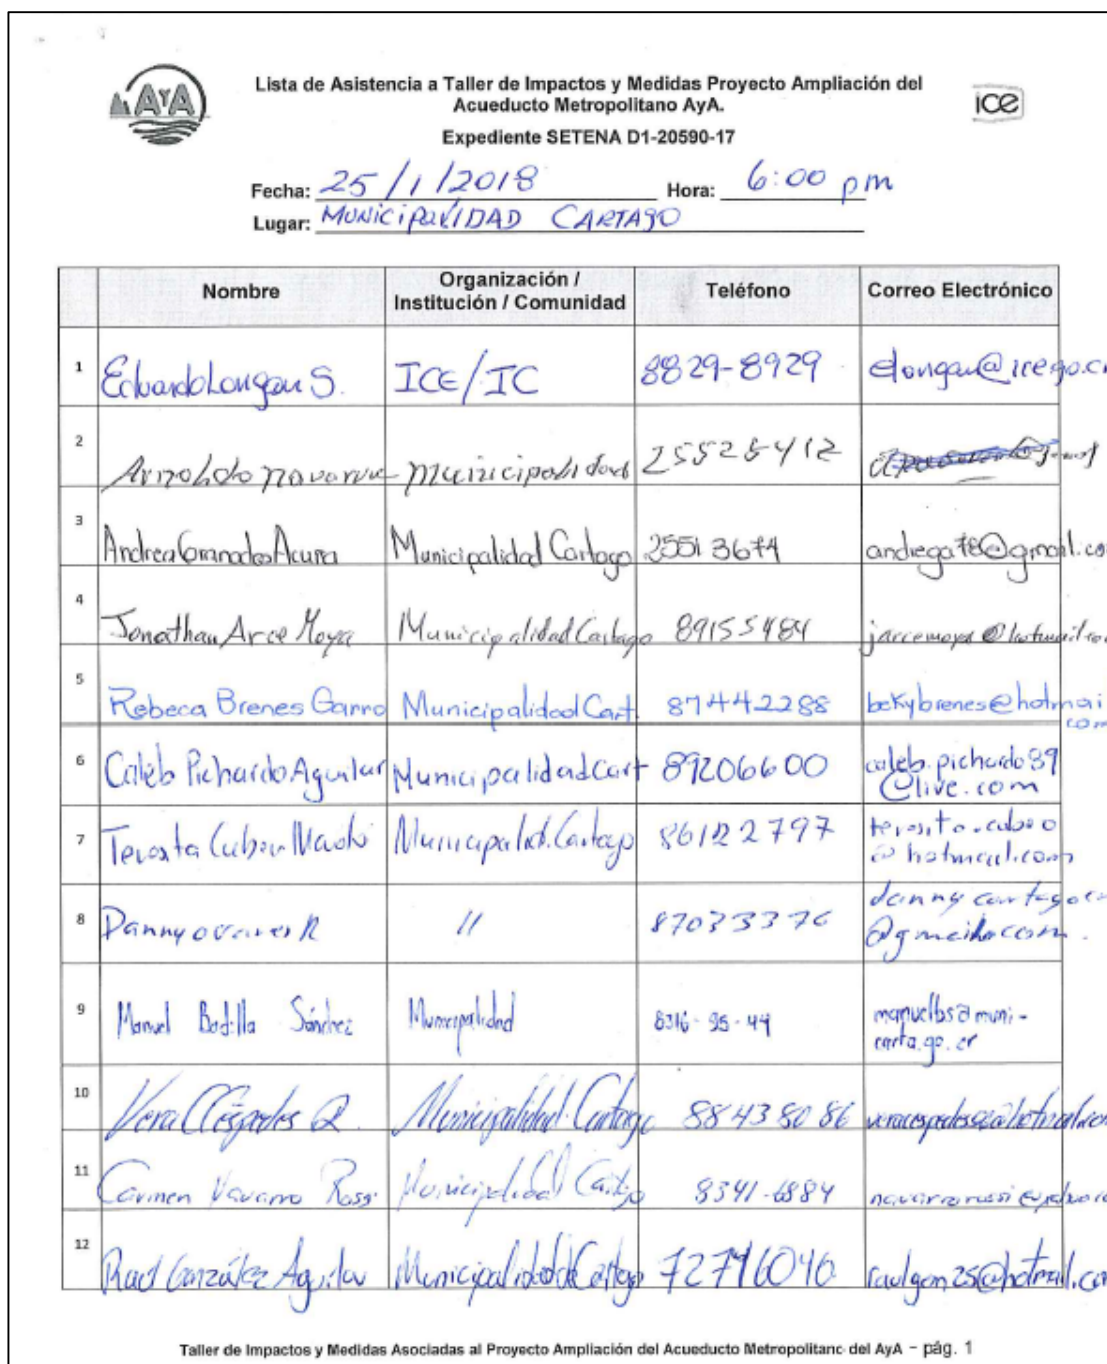 AyA
Lista de Asistencia a Taller de Impactos y Medidas Proyecto Ampliación del
Acueducto Metropolitano AyA.
ice
Expediente SETENA D1-20590-17
Fecha: 25/1/2018 Hora: 6:00 pm
Lugar: MUNICIPALIDAD CARTAGO
Nombre Organización / Institución / Comunidad Teléfono Correo Electrónico
1 Eduardo Longan S. ICE/IC 8829-8929 elongan@ice.go.cr
2 Arnoldo Navarro Municipalidad 25525412
3 Andrea Granados Acuña Municipalidad Cartago 2551 3674 andrega78@gmail.co
4 Jonathan Arce Moya Municipalidad Cartago 89155484 jarcemoya@hotmail.co
5 Rebeca Brenes Garro Municipalidad Cart. 87442288 bekybrenes@hotmai
com
6 Caleb Pichardo Aguilar Municipalidad Cart 89206600 caleb.pichardo89
@live.com
7 Municipalid. Cartago 86122797
@hotmail.com
8 Danny Ovares R 11 87033376 danny cartago
@gmail.com.
9 Manuel Badilla Sánchez Municipalidad 8316-95-44 manuelbs@muni-
carta.go.cr
10 Vera Céspedes Q. Municipalidad Cartago 88438086
11 Carmen Navarro Rossi Municipalidad Cartago 8341-6884
12 Raul González Aguilar Municipalidad de Cartago 72716046 raulgon25@hotmail.co
Taller de Impactos y Medidas Asociadas al Proyecto Ampliación del Acueducto Metropolitano del AyA - pág. 1